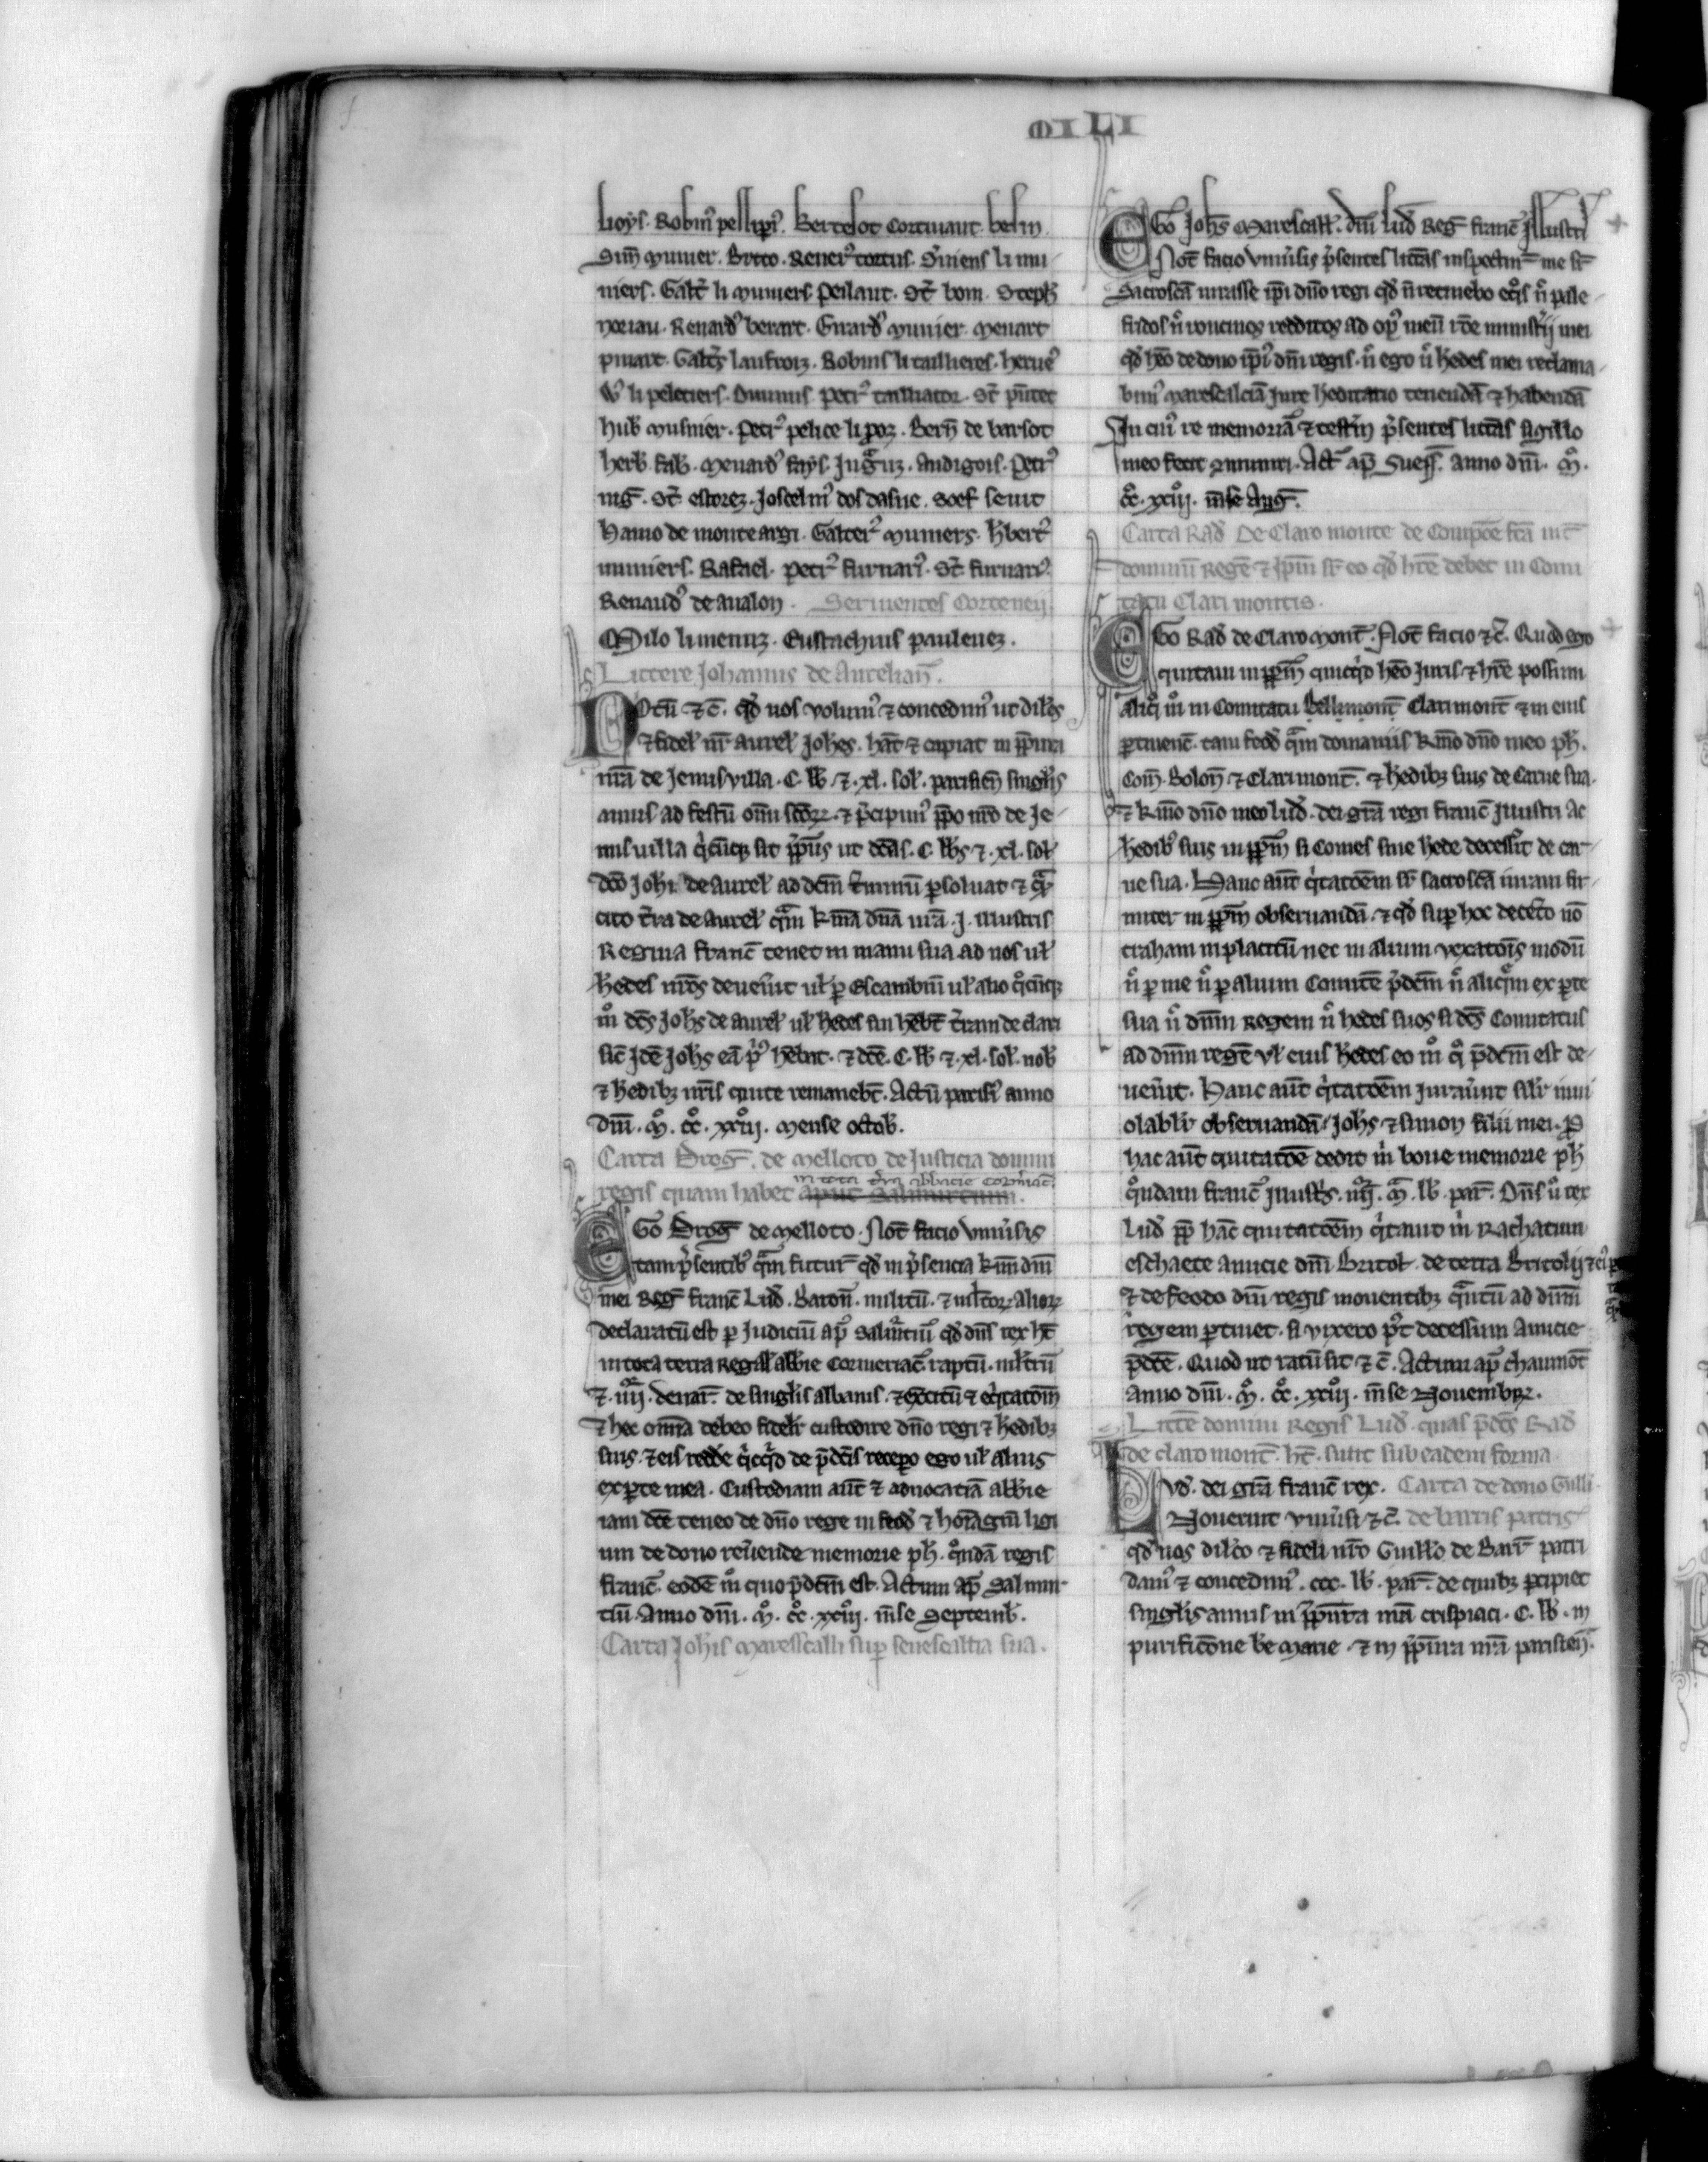 MILI
lioys. Robin᷒ pellip᷒. Bertelot Cortinant. belin.
Sim̄ Munier. Britto. Rener᷒ tortus. S'uiens li mu
niers. Galt̄ li Muniers Peilaut. St̄ bom. Steph̄
noriau. Renard᷒ berart. Euard᷒ Munier. Menart
pinart. Galt̄s laufroiz. Robins li tailleres. herue᷒
W᷒ li peletiers. Dunnus Petr᷒ tailliator. St̄ pūtet
hub̄ Musnier. Petr᷒ pelice li porz. Bern̄ de barsot
herb̄. fab̄. Menard᷒ fays. Andigois. Petr᷒
niḡ. St̄ estorez. Joscelin᷒ dos dasne. Soef seuit
Hamo de monte argi. Galter᷒ Muniers. H'bert᷒
muniers. Rafael. Petr᷒ furnari᷒. St̄ furnari᷒.
Renaud᷒ de aualon. Seruientes Corteneij
Milo li menuz. Eustachius pauleuez.
Littere Johannis de Aurelian̄.
Notū ⁊ c̄. qd̄ nos volum᷒ ⁊ concedim᷒ ut dil̄s
⁊ fidel̄ nr̄ aurel̄ Johes. hāt ⁊ capiat in p̄pitura
nr̄a de Jenuisvilla. C. lb̄. ⁊. xl. sol̄. parisien̄ singl̄is
annis ad festū om̄iū scōꝝ. ⁊ p̄cipim᷒ p̄po nr̄o de Je
nuisuilla q̄cūqꝫ sit p̄pit᷒ ut dc̄as. C. lb̄s ⁊. xl. sol̄
dc̄o Joh̄i de aurel̄ ad dc̄m t̄minū p̄soluat ⁊ q̄m
cito t̄ra de aurel̄ q̄m kma dn̄a nr̄a. J. illustris
Regina franc̄ tenet in manu sua ad nos ul̄
h'edes nr̄os deuen̄it ul̄ p escambiū ul̄ alio q̊cūqꝫ
m̊ dc̄s Joh̄s de aurel̄ ul̄ h'edes sui heb̄t t̄ram de clari
sic̄ Idē Joh̄s eā p᷒ heb̄at. ⁊ dc̄e. C. lb̄ ⁊. xl. sol̄. nob̄
⁊ h'edibꝫ nr̄is quite remanebt̄. Actū parisi᷒ anno
dn̄i. M̊. cc̊. xx̊iij. Mense octob̄.
Carta Droḡ. de Melloto de Justicia domini
in tota t̄ra abbacie Cormac̄.
regis quam habet apud Salmurtum.
EGo Droḡ de Melloto. Not̄ facio vniu'sis
tam p̄sentib᷒ q̄m futur̄ qd̄ in p̄sencia km̄i dn̄i
mei Reḡ franc̄ Lud̄. Baron̄. militū. ⁊ ml̄toꝝ alioꝝ
declaratū est p Judiciū ap᷒ Salmurtiū qd̄ dn̄s rex ht̄
in tota terra Regal̄ abb̄ie Cormeriac̄ raptū. ml̄trū
⁊. iiij. denar̄. de singl̄is albanis. ⁊ exc̄itū ⁊ eq̄tatōm̄
⁊ hec om̄ia debeo fidelit̄ custodire dn̄o regi ⁊ h'edibꝫ
suis. ⁊ eis redde q̄cq̄d de p̄dc̄is recepo ego ul̄ alius
ex pte mea. Custodiam aūt ⁊ aduocatiā abb̄ie
iam dc̄e teneo de dn̄o rege in feod̄ ⁊ homagiū ligi
um de dono reu'ende memorie ph̄. q̊ndā regis
franc̄. eodē m̊ quo p̄dc̄m est. Actum ap̄ Salmur
tiū. Anno dn̄i. M̊. cc̊. xx̊iij. m̄se Septemb̄.
Carta Johis Marescalli sup senescaltia sua.
EGo Joh̄s Marescall̄. dn̄i Lud̄ Reḡ franc̄ Jllustri
Not̄ facio vniu'sis p̄sentes litt̄as inspectur̄ me sr̄
Sacroscā iurasse ip̄i dn̄o regi qd̄ n̄ retinebo eq̊s n̄ pale
fridos n̄ roncinos redditos ad op᷒ meū rōe ministerij mei
qd̄ hēo de dono ip̄i᷒ dn̄i regis. n̄ ego n̄ h'edes mei reclama
bim᷒ marescalciā Jure heditario tenendā ⁊ habendā
In cui᷒ re memoriā ⁊ testīm̄ p̄sentes litt̄as sigillo
meo feci ꝯmuniri. Act̄ ap̄ Suess̄. anno dn̄i. M̊.
cc̊. xx̊iij. m̄se Auḡ.
Carta Rad̄ De Claro monte de Compōe fc̄a int̄
dominū Regē ⁊ ip̄m sr̄ eo qd̄ hr̄e debet in Comi
tatu Clari montis.
EGo Rad̄ de Claro Mont̄. Not̄ facio ⁊c̄. Quod ego
quitam inp̄pm̄ quicq̄d hēo Juris ⁊ hr̄e possum
aliq̊ m̊ in Comitatu Bellimont̄ Clarimont̄ ⁊ in eius
ptinenc̄. tam feod̄ q̄m domaniis kmo dn̄o meo ph̄.
Com̄. Bolon̄ ⁊ Clarimont̄. ⁊ h'edibꝫ suis de Carne sua.
⁊ kmo dn̄o meo lud̄. dei gr̄a regi franc̄ Jllustri Ac
h'edib᷒ suis in p̄pm̄ si Comes sine h'ede decess'it de car
ne sua. Hanc aūt q̄tatōem sr̄ sacroscā iuraui fir
miter in p̄pm̄ obseruandā. ⁊ qd̄ sup hoc decet'o nō
traham in placitū nec in alium vexatōis modū
n̄ p me n̄ p alium Comitē p̄dc̄m n̄ aliq̄m ex pte
sua n̄ dn̄m Regem n̄ h'edes suos si dc̄s Comitatus
ad dn̄m regē vl̄ eius h'edes eo m̊ q̊ p̄dc̄m est de
uen̄it. Hanc aūt q̄tatōem Jurau't sil̄r inui
olabl̄r obseruandā Joh̄s ⁊ simon filii mei. P
hac aūt quitatōe dedit m̄ bone memorie ph̄
q̊ndam franc̄ Jllust᷒s. iiij. M̄. lb̄. par̄. Dn̄s ů rex
Lud̄ pp̄ hāc quitatōem q̄tauit m̄ Rachatum
eschaete amicie dn̄i Britol̄. de terra Britolij ⁊ ei᷒ p
⁊ de feodo dn̄i regis mouentibꝫ q̄ntū ad dn̄m̄
regem ptinet. si vixero p᷒t decessum Amicie
p̄dc̄e. Quod ut ratū sit ⁊ c̄. Actum ap̄ chaumōt
anno dn̄i. M̊. cc̊. xx̊iij. m̄se Nouembꝛ.
Litt̄e domini Regis Lud̄. quas p̄dc̄s Rad̄
de claro mont̄. ht̄. sunt sub eadem forma
LVd̄. dei gr̄a franc̄ rex. Carta de dono Guilli.
Nouerint vniu'si ⁊ c̄. de barris patris
qd̄ nos dilc̄o ⁊ fideli nr̄o Guill̄o de Barr̄ patri
dam᷒ ⁊ concedim᷒. ccc. lb̄. par̄. de quibꝫ pcipiet
singl̄is annis in p̄pitura nr̄a crispiaci. C. lb̄. in
purificōne be Marie. ⁊ in p̄pitura nr̄a parisien̄.